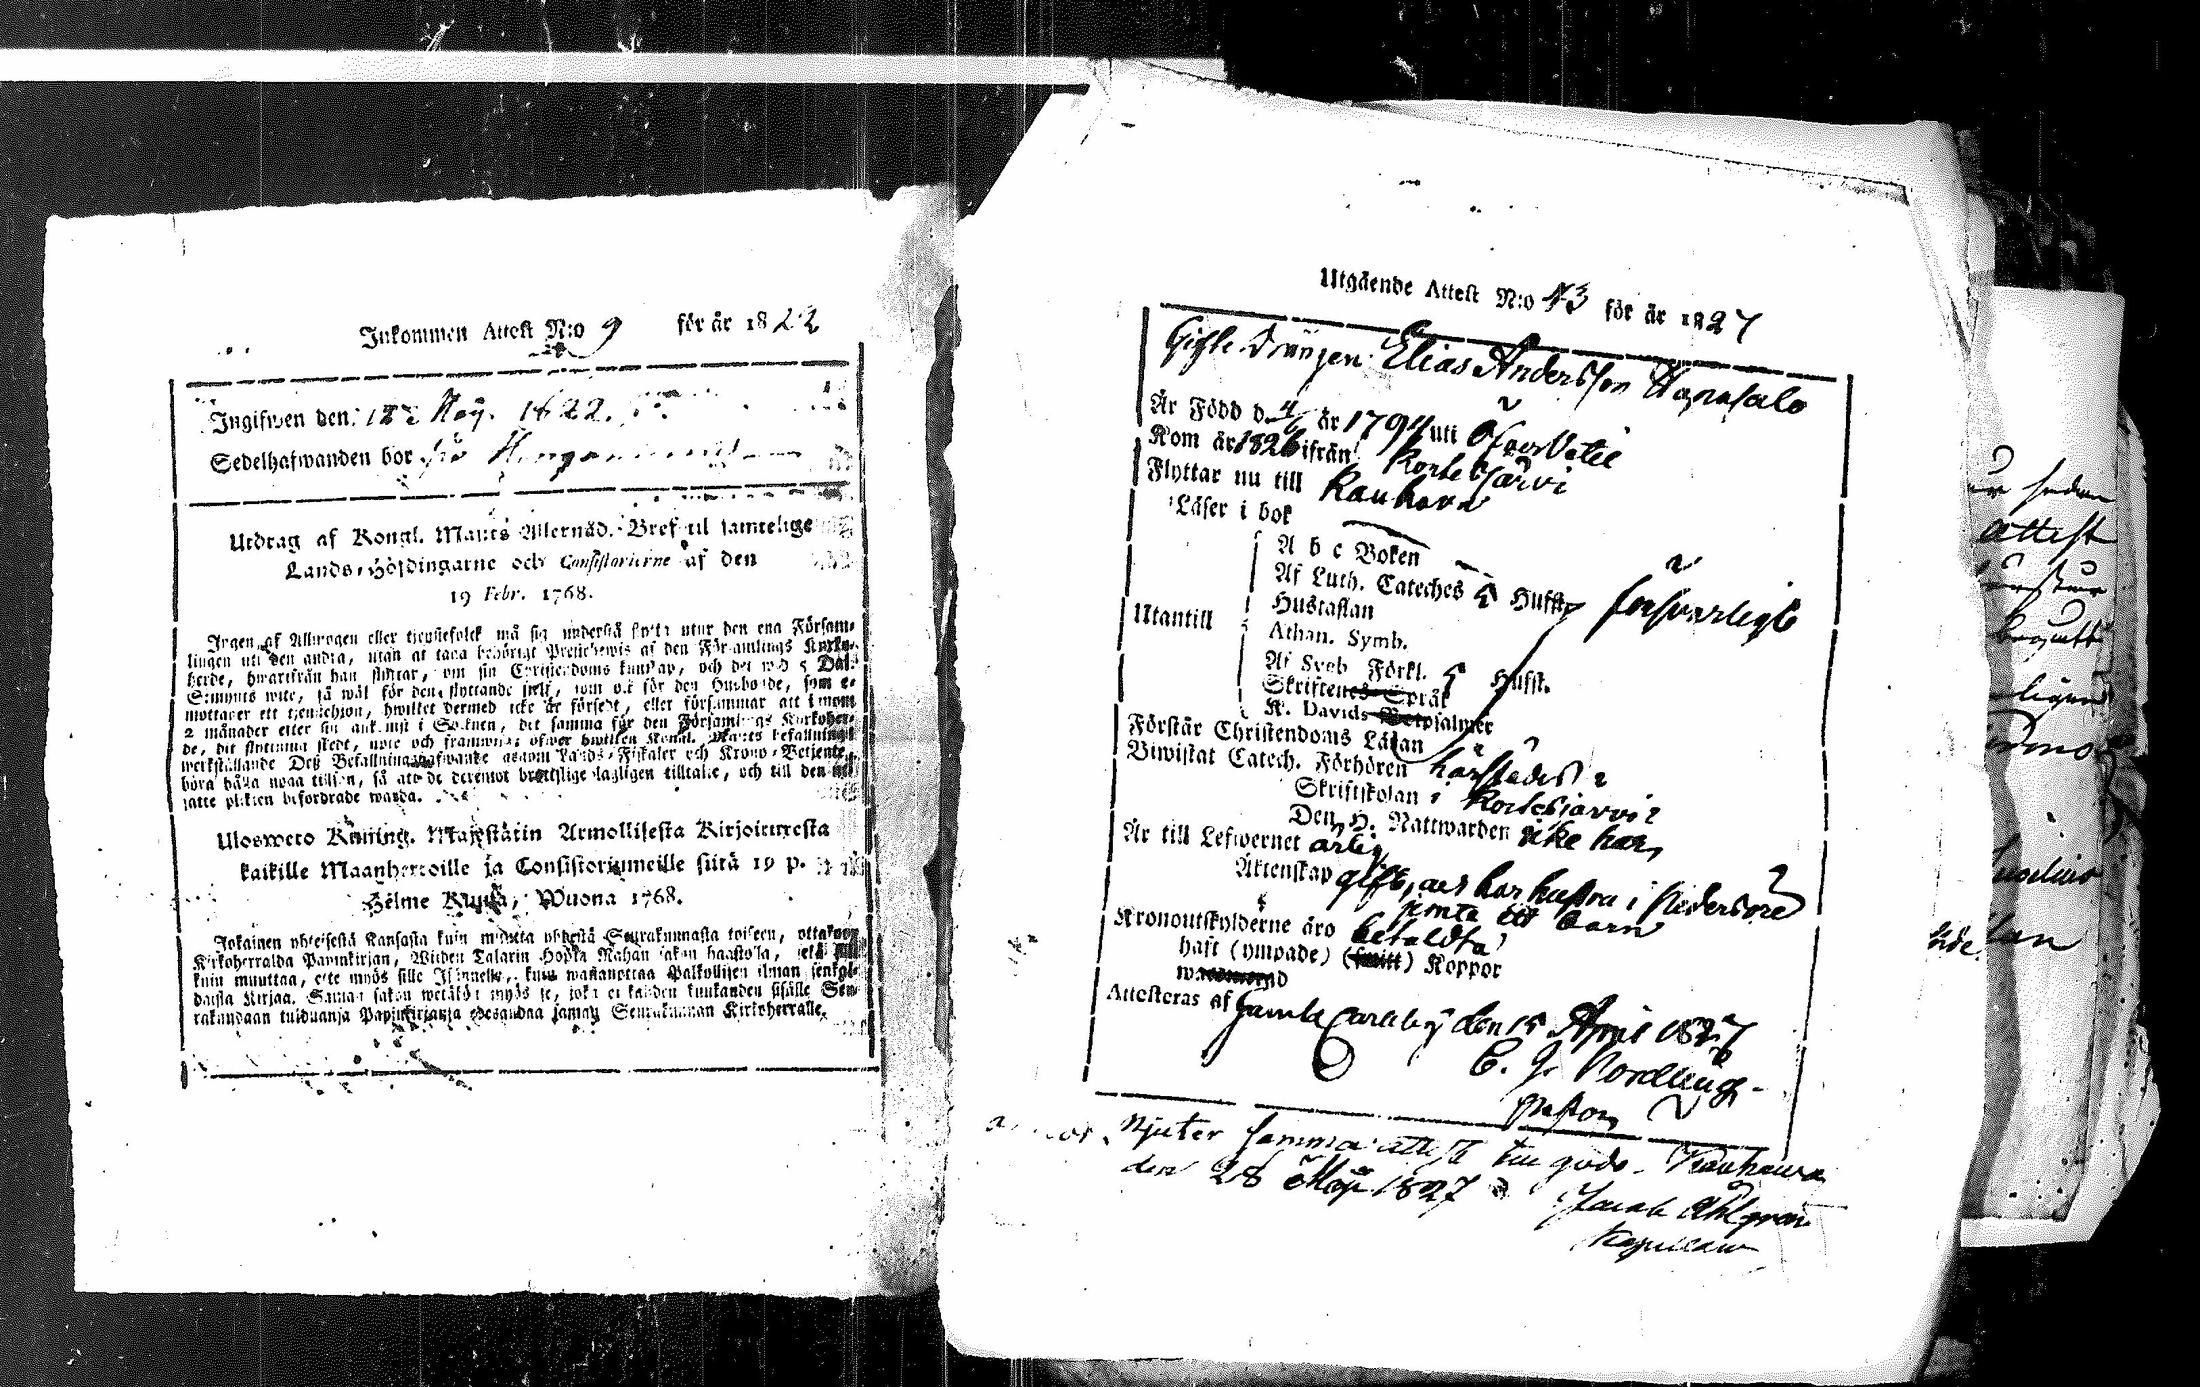 Inkommen Attest N:o 9 för år 1822
Ingifwen den: 12 Maÿ. 1822.
Sedelhafwanden bor
Utdrag af Kongl. Maijts Allernåd. Bref til samtelige
Lands-Höfdingarne och Consistorierne af den
19 Febr. 1768.
Ingen af Allmogen eller tienstefolck må sig understå flytta utur den ena Försam-
lingen uti den andra, utan at taga behörigt Prestebewis af den Församlings Kyrko-
herde, hwarifrån han flyttar, om sin Christendoms kunskap, och det wid 5 Dal.
S:mynts wite, så wäl för den flyttande sielf, som ock för den Husbonde, som e-
mottager ett tjenstehjon, hwilket dermed icke är försedt, eller försummar att inom
2 månader efter sin ankomst i Socknen, det samma för den Församlings Kyrkoher-
de, dit flyttning skedt, upte och framwisa; öfwer hwilken Kongl. Maijts befallnings
werkställande Deß Befallningshafwande genom Lands-Fiskaler och Krono-Betjente
böra hålla noga tillsyn, så att de deremot brottslige lagligen tilltalte, och till den
satte plikten befordrade warda.
Ulosweto Kuning. Majestätin Armollisesta Kirjoituxesta
kaikille Maanherroille ja Consistoriumeille siitä 19 p.
Helme Kuuta, Wuona 1768.
Jokainen yhteisestä Kansasta kuin muutta yhdestä Seurakunnasta toiseen, ottakoon
Kirkoherralda Papinkirjan, Wiiden Talarin Hopia Rahan sakon haastolla, sekä
kuin muuttaa, ette myös sille Isännelle, kuin wastanottaa Palkollisen ilman senkal-
daista Kirjaa. Saman sakon wetäkön myös se, joka ei kahden kuukauden sisälle Seu-
rakundaan tulduanja Papinkirjanja edesandaa saman Seurakunnan Kirkoherralle.
Utgående Attest N:o 43 för år 1827
Gifte Drängen Elias Andersson Haapasalo
Är Född d. 4/6 år 1794 uti ÖfverVetil
Kom år 1826 ifrån Kortesjärvi
Flyttar nu till Kauhava
Läser i bok
A b c Boken
Af Luth. Cateches 5 Hufst.
försvarligt
Hustaflan
Utantill
Athan. Symb.
Af Sveb Förkl. 5 Hufst.
Skriftenes Språk
K. Davids Botpsalmer
Förstår Christendoms Läran
Biwistat Catech. Förhören härstädes
Skriftskolan i Kortesjärvi
Den H. Nattwarden icke här,
Är till Lefwernet ärlig
Äktenskap gift, och har hustru i Pedersöre
jemte ett barn
Kronoutskylderne äro betaldta
haft (ympade) (smitt) Koppor
Attesteras af Gamla Carleby den 15 April 1827
C. J. Nordlung
Pastor
Njuter samma attest till godo. Kauhawa
den 28 Maji 1827
Jacob Ahlgren
Kapellan
ur sedan
attest
ligen
lan